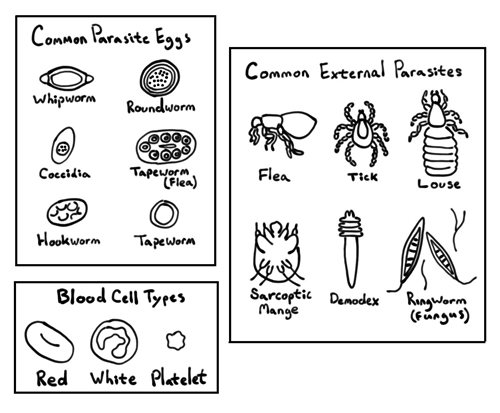 Common Parasite Eggs
Whipworm
Roundworm
Coccidia
Tapeworm
(Flea)
Hookworm
Tapeworm
Blood Cell Types
Red
White
Platelet
Common External Parasites
Flea
Tick
Louse
Sarcoptic
Mange
Demodex
Ringworm
(Fungus)